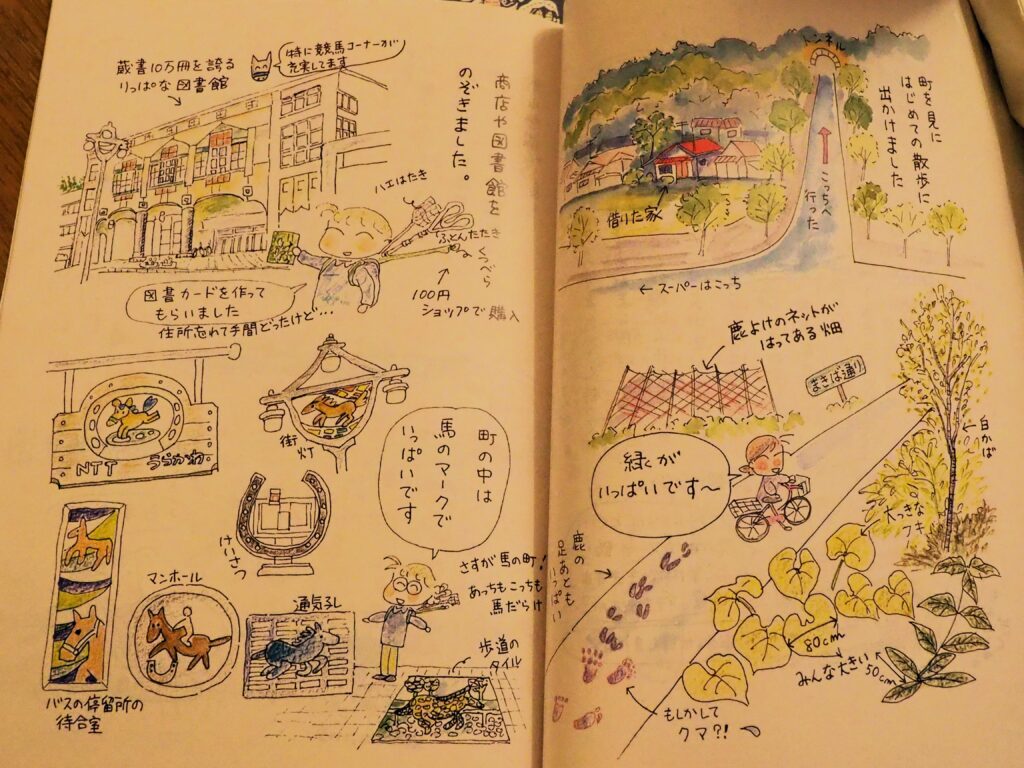 町を見に
はじめての散歩に
出かけました
トンネル
こっちへ
行った
借りた家
←スーパーはこっち
鹿よけのネットが
はってある畑
まきば通り
緑が
いっぱいです〜
白かば
大っきな
フキ
鹿の
足あとも
いっぱい
80cm
みんな大きい
50cm
もしかして
クマ?!
商店や図書館を
のぞきました。
特に競馬コーナーが
充実してます
蔵書10万冊を誇る
りっぱな図書館
ハエはたき
ふとんたたき
くつべら
100円
ショップで購入
図書カードを作って
もらいました
住所忘れて手間どったけど…
NTT うらかわ
街灯
町の中は
馬のマークで
いっぱいです
けいさつ
さすが馬の町!
あっちもこっちも
馬だらけ
マンホール
通気孔
歩道の
タイル
バスの停留所の
待合室